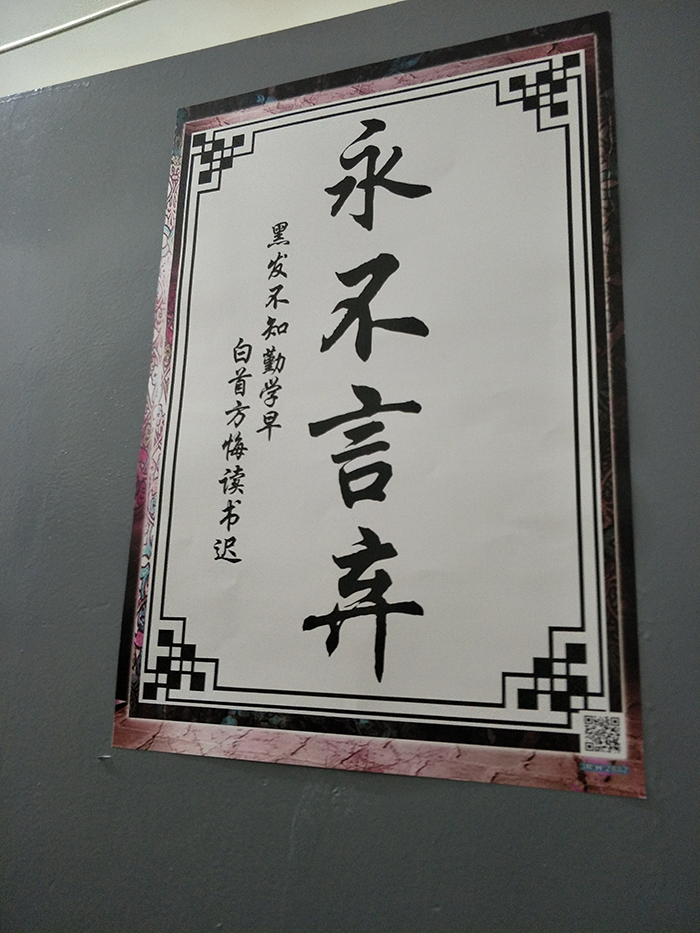 永不言弃
黑发不知勤学早
白首方悔读书迟